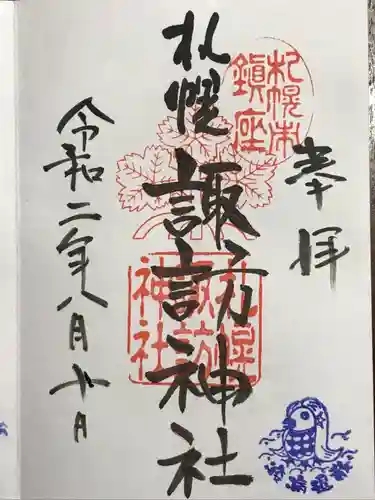 奉拝
札幌市
鎮座
札幌諏訪神社
札幌
諏訪
神社
令和二年八月十日